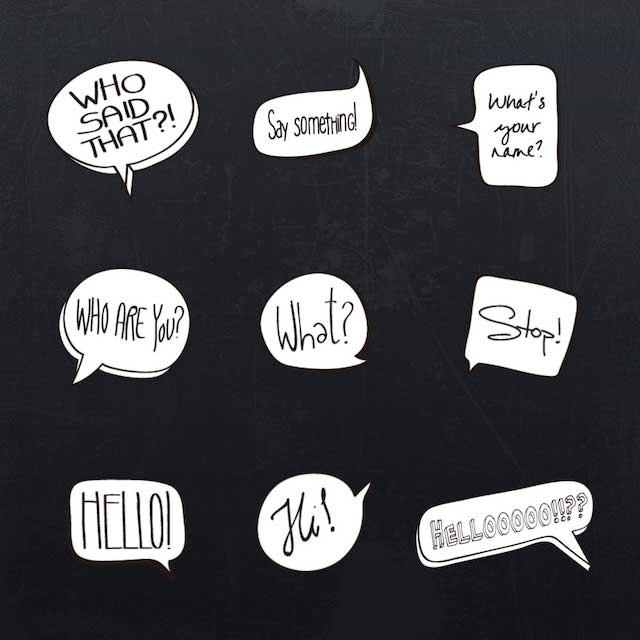 WHO
SAID
THAT?!
Say something!
What's
your
name?
WHO ARE YOU?
What?
Stop!
HELLO!
Hi!
HELLOOOOO!!??